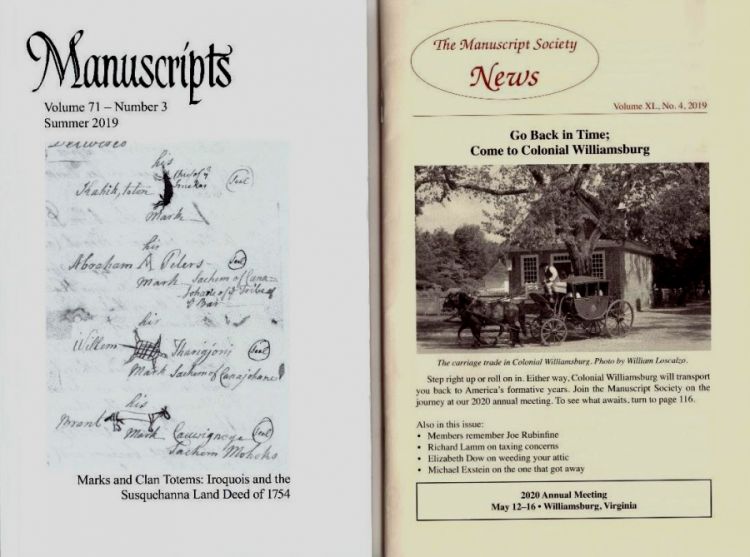 Manuscripts
Volume 71 – Number 3
Summer 2019
his
mark
his
Abraham Peters
Mark Sachem of Cana-
his
Willem Tharigjoris
Mark Sachem of Canajohare
his
Brant
Mark
Sachem Mohoks
Marks and Clan Totems: Iroquois and the
Susquehanna Land Deed of 1754
The Manuscript Society
News
Volume XL, No. 4, 2019
Go Back in Time;
Come to Colonial Williamsburg
The carriage trade in Colonial Williamsburg. Photo by William Loscalzo.
Step right up or roll on in. Either way, Colonial Williamsburg will transport
you back to America's formative years. Join the Manuscript Society on the
journey at our 2020 annual meeting. To see what awaits, turn to page 116.
Also in this issue:
• Members remember Joe Rubinfine
• Richard Lamm on taxing concerns
• Elizabeth Dow on weeding your attic
• Michael Exstein on the one that got away
2020 Annual Meeting
May 12–16 • Williamsburg, Virginia